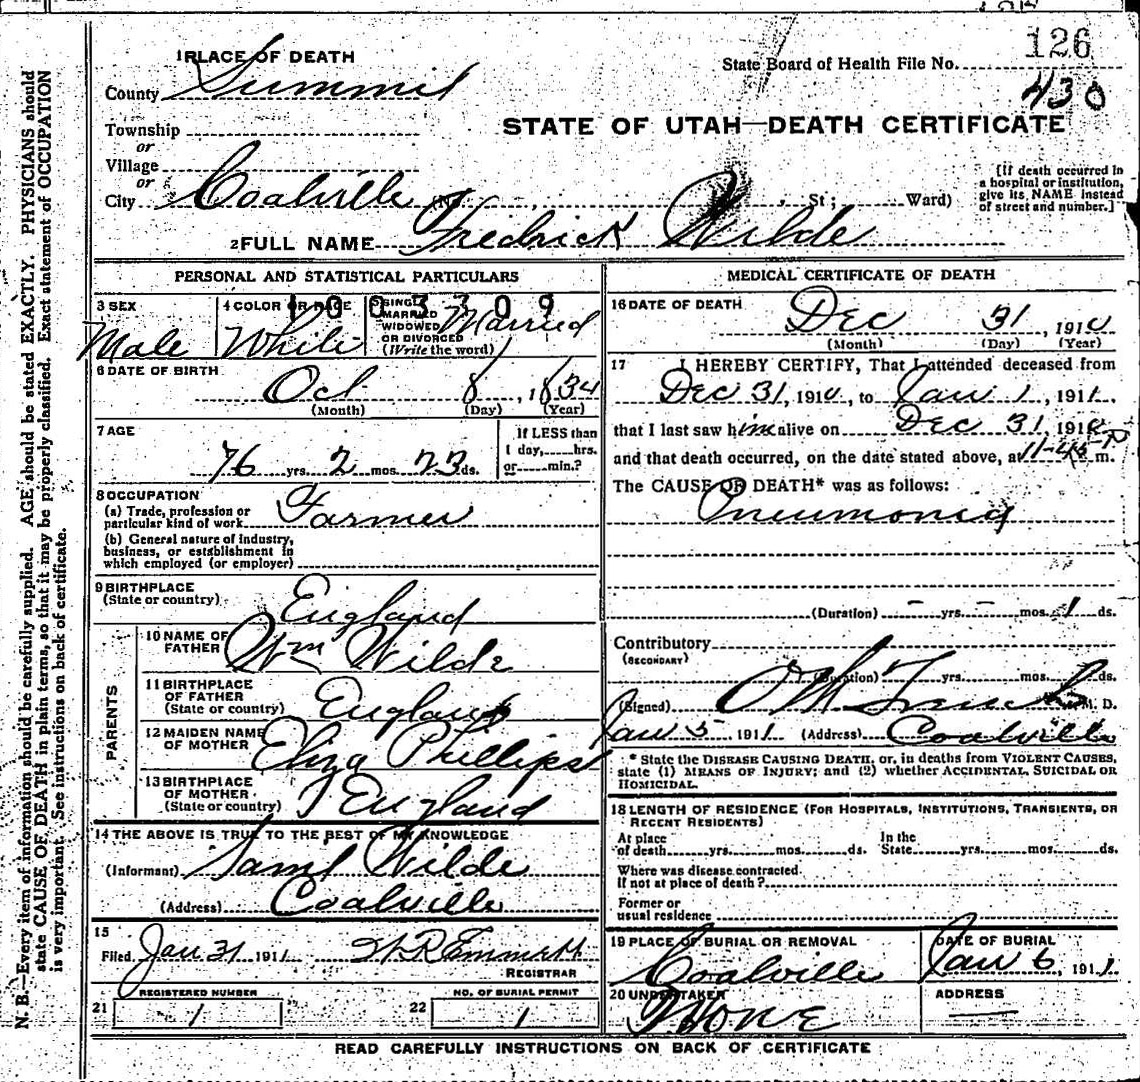 126
State Board of Health File No.
430
STATE OF UTAH—DEATH CERTIFICATE
1 PLACE OF DEATH
County Summit
Township
or
Village
or
City Coalville (No. , St ; Ward)
[If death occurred in
a hospital or institution,
give its NAME instead
of street and number.]
2 FULL NAME Fredrick Wilde
PERSONAL AND STATISTICAL PARTICULARS
1003309
3 SEX
Male
4 COLOR OR RACE
White
5 SINGLE
MARRIED
WIDOWED
OR DIVORCED
(Write the word)
Married
6 DATE OF BIRTH
Oct 8, 1834
(Month) (Day) (Year)
7 AGE
76 yrs. 2 mos. 23 ds.
If LESS than
1 day, hrs.
or min.?
8 OCCUPATION
(a) Trade, profession or
particular kind of work Farmer
(b) General nature of industry,
business, or establishment in
which employed (or employer)
9 BIRTHPLACE
(State or country) England
PARENTS
10 NAME OF
FATHER Wm Wilde
11 BIRTHPLACE
OF FATHER
(State or country) England
12 MAIDEN NAME
OF MOTHER Eliza Phillips
13 BIRTHPLACE
OF MOTHER
(State or country) England
14 THE ABOVE IS TRUE TO THE BEST OF MY KNOWLEDGE
(Informant) Saml Wilde
(Address) Coalville
15
Filed Jan 31 1911
REGISTRAR
REGISTERED NUMBER
21 1
NO. OF BURIAL PERMIT
22 1
MEDICAL CERTIFICATE OF DEATH
16 DATE OF DEATH
Dec 31, 1910
(Month) (Day) (Year)
17 I HEREBY CERTIFY, That I attended deceased from
Dec 31, 1910, to Jan 1, 1911,
that I last saw him alive on Dec 31, 1910
and that death occurred, on the date stated above, at 11-45 P m.
The CAUSE OF DEATH* was as follows:
Pneumonia
(Duration) - yrs. - mos. 1 ds.
Contributory
(SECONDARY)
(Duration) yrs. mos. ds.
(Signed) M. D.
Jan 5 1911 (Address) Coalville
* State the DISEASE CAUSING DEATH, or, in deaths from VIOLENT CAUSES,
state (1) MEANS OF INJURY; and (2) whether ACCIDENTAL, SUICIDAL OR
HOMICIDAL.
18 LENGTH OF RESIDENCE (FOR HOSPITALS, INSTITUTIONS, TRANSIENTS, OR
RECENT RESIDENTS)
At place
of death yrs. mos. ds.
In the
State yrs. mos. ds.
Where was disease contracted
If not at place of death?
Former or
usual residence
19 PLACE OF BURIAL OR REMOVAL
Coalville
DATE OF BURIAL
Jan 6, 1911
20 UNDERTAKER
None
ADDRESS
READ CAREFULLY INSTRUCTIONS ON BACK OF CERTIFICATE
N. B.—Every item of information should be carefully supplied. AGE should be stated EXACTLY. PHYSICIANS should
state CAUSE OF DEATH in plain terms, so that it may be properly classified. Exact statement of OCCUPATION
is very important. See instructions on back of certificate.